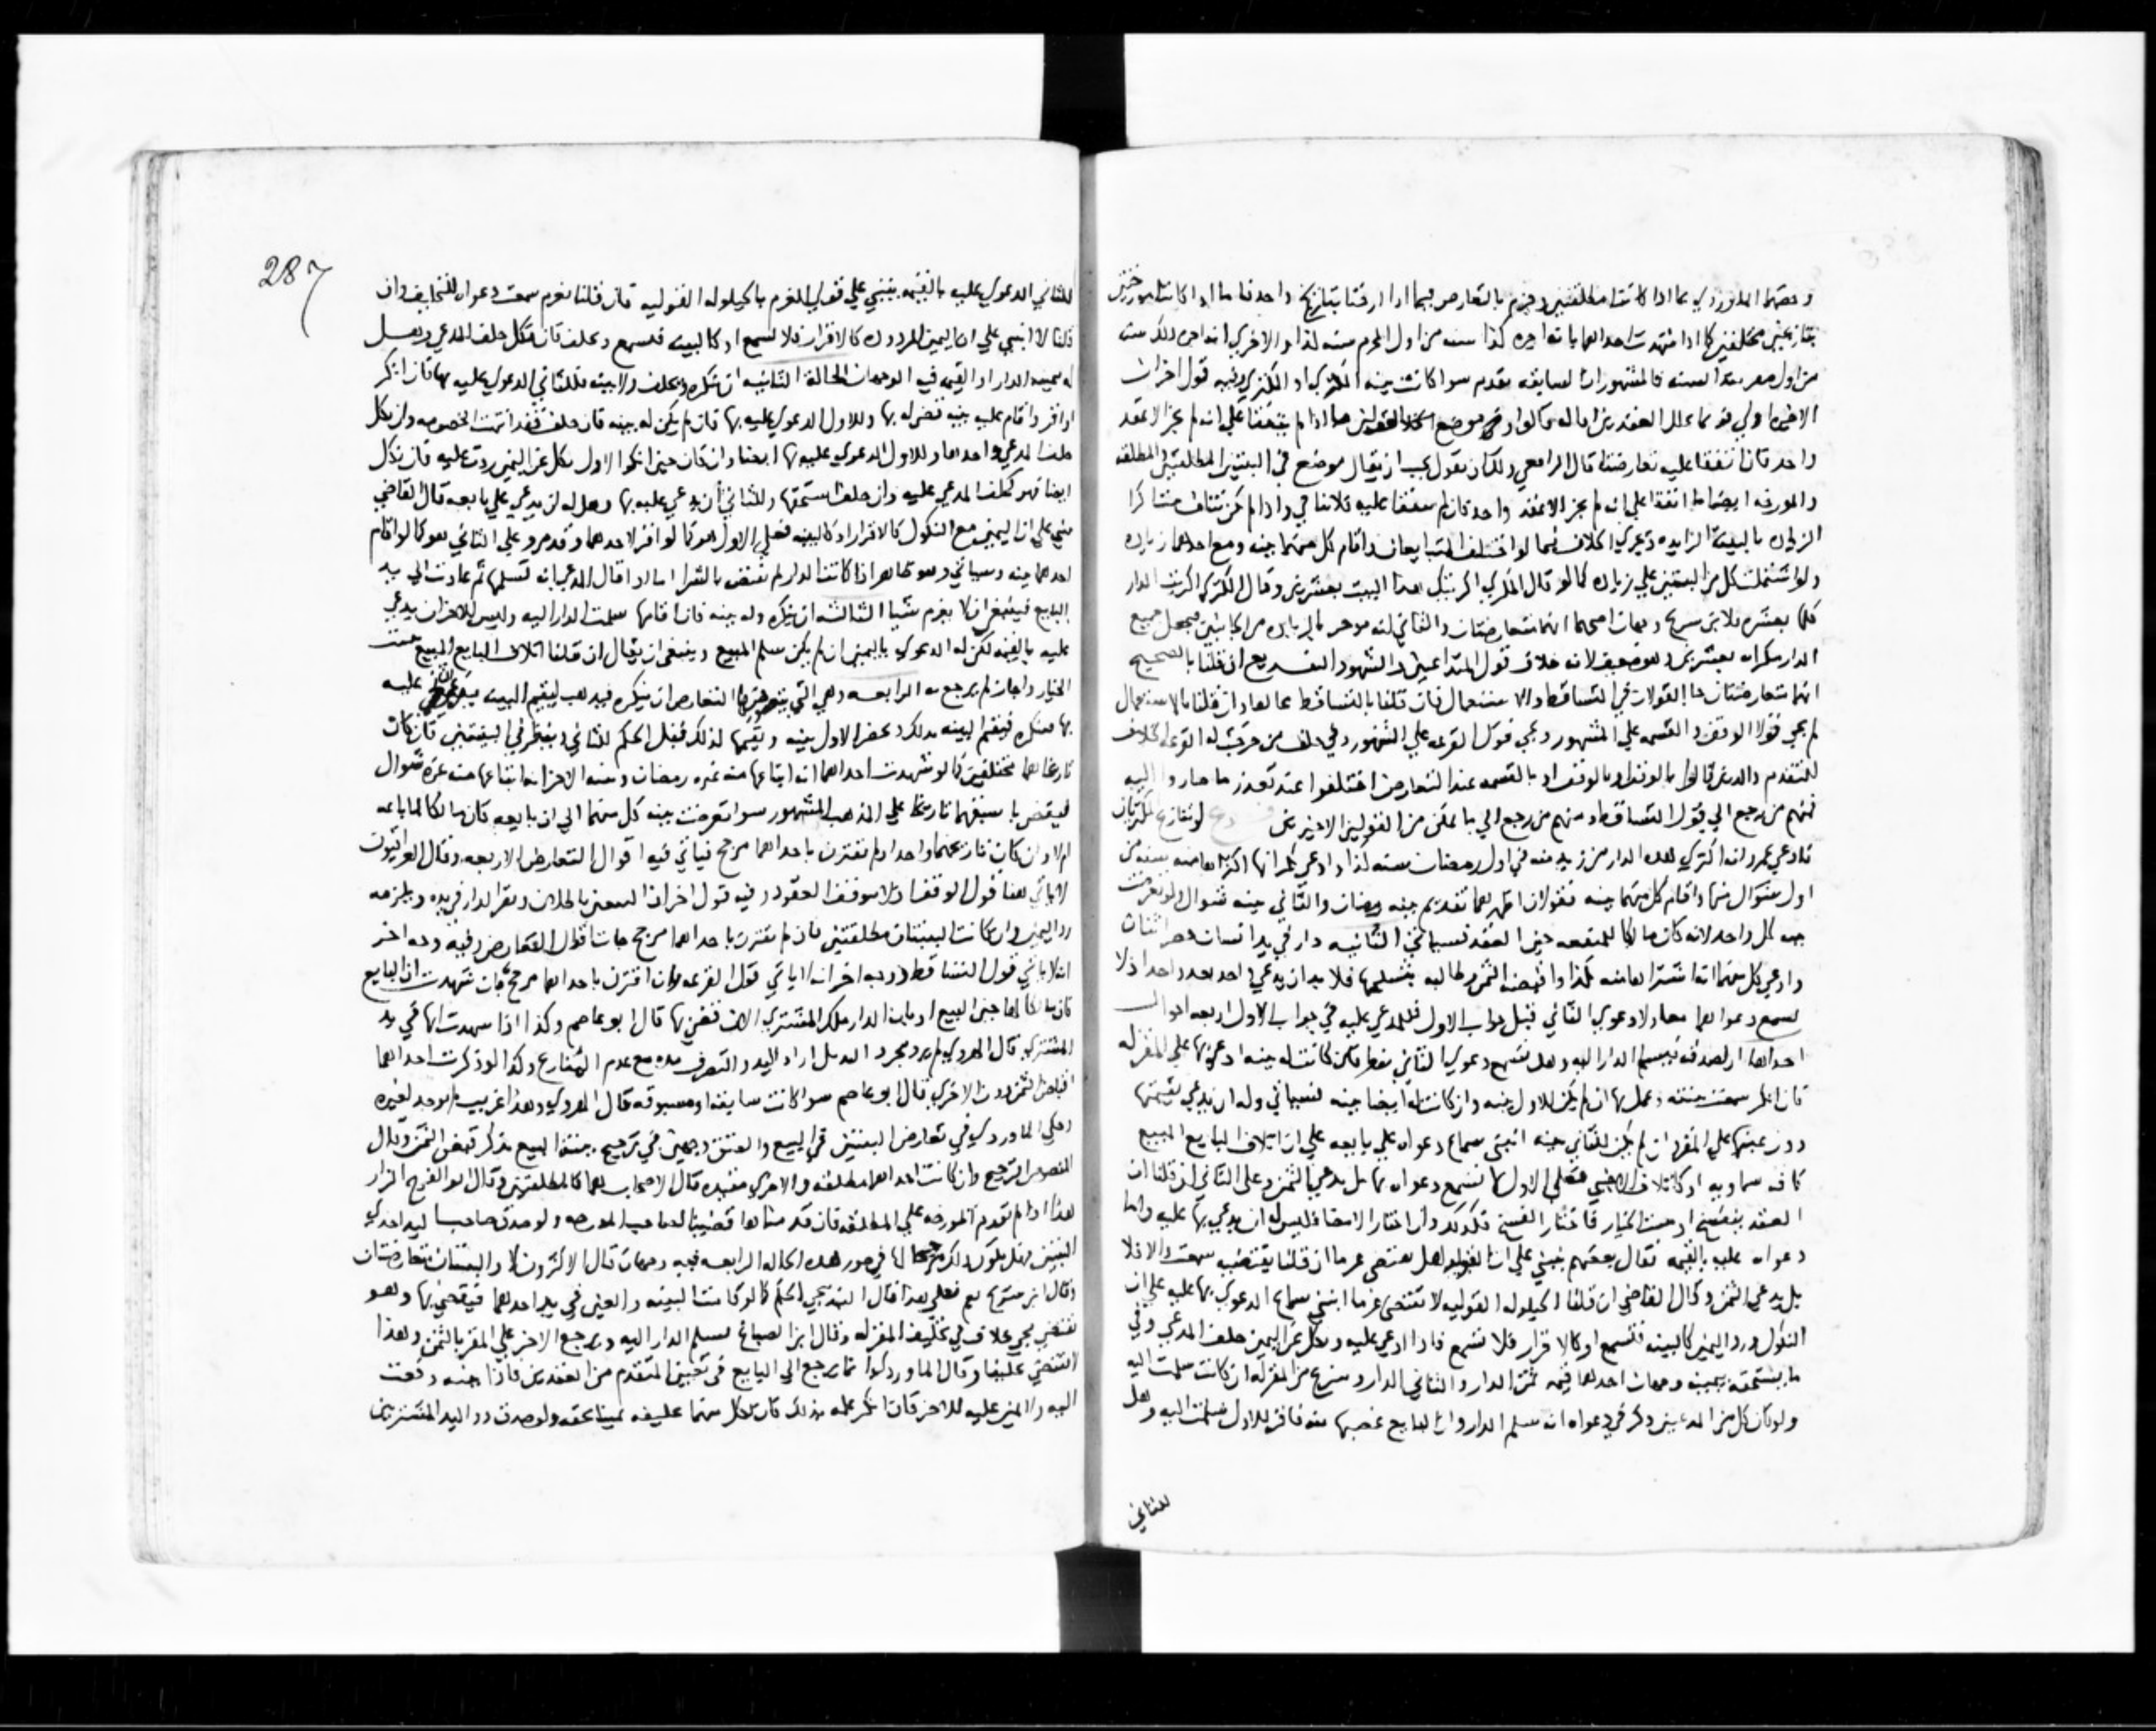 وخصهما الماوردي بما اذا كانتا مطلقتين وجزم بالتعارض فيما اذا ارختا بتاريخ واحد فاما اذا كانتا مورختين
بتاريخين مختلفين كما اذا شهدت احداهما بانه اجره كذا سنه من اول المحرم سنه كذا والاخرى انه اجره ذلك سنه
من اول صفر هذا السنه فالمشهور ان السابقه تقدم سوا كانت بينه المكري او المكتري وفيه قول اخر ان
الاخيره اولى
واحد فان اتفقا عليه تعارضتا قال الرافعي ولك ان تقول يجب ان يقال موضع في البينتين المطلقتين والمطلقه
والمورخه ايضا ما اذا اتفقا على انه لم يجز الا عقد واحد فان لم يتفقا عليه فلا تنافي واذا لم تكن تتنافا
الزياده بالبينة الزايده ويجري الخلاف فيما لو اختلف المتبايعان واقام كل منهما بينه ومع احداهما زياده
ولو اشتملت كل من البينتين على زياده كما لو قال المكري اكريتك هذا البيت بعشرين وقال المكتري اكريت الدار
كلها بعشره فلابن سريج وجهان اصحهما انهما متعارضتان والثاني انه يوخذ بالزياده من الجانبين فيجعل جميع
الدار مكراه بعشرين وهو ضعيف لانه خلاف قول المتداعيين والشهود التفريع ان قلنا بالصحيح
انهما متعارضتان جا القولان في التساقط والاستعمال فان قلنا بالتساقط تحالفا وان قلنا بالاستعمال
لم يجي قولا الوقف والقسمه على المشهور ويجي قول القرعه على المشهور وفي حلف من خرجت له القرعه الخلاف
المتقدم والذين قالوا بالوقف او بالقسمه عند التعارض اختلفوا عند تعذر ما صاروا اليه
فمنهم من رجع الى قول التساقط ومنهم من رجع الى ما بقي من القولين الاخيرين فرع لو تنازع المكتريان
فادعى عمرو انه اكترى هذه الدار من زيد سنه في اول رمضان سنه كذا وادعى بكر انه اكتراها منه سنه من
اول شوال منها واقام كل منهما بينه فقولان اظهرهما تقديم بينه رمضان والثاني بينه شوال ولو تعرضت
بينه كل واحد لانه كان مالكا للمنفعه حين العقد فسياتي الثانيه دار في يد انسان حضر اثنان
وادعى كل منهما انه اشتراها منه بكذا واقبضه الثمن وطالبه بتسليمها فلا بد ان يدعي واحد بعد واحد اذ لا
تسمع دعواهما معا ولا دعوى الثاني قبل جواب الاول فللمدعى عليه في جواب الاول اربعه احوال
احداها ان يصدقه فيسلم الدار اليه وهل تسمع دعوى الثاني نظر فان كانت له بينه ادعى بها على المقر له
فان انكر سمعت بينته وعمل بها ان لم يكن للاول بينه وان كانت له ايضا بينه فسياتي وله ان يدعي بقيمتها
دون عينها على المقر وان لم يكن للثاني بينه انبنى سماع دعواه على بايعه على ان اتلاف البايع المبيع
كافه سماويه او كاتلاف الاجنبي فعلى الاول لا تسمع دعواه بها بل يدعي بالثمن وعلى الثاني ان قلنا ان
العقد ينفسخ او يثبت الخيار فاختار الفسخ فكذلك وان اختار الامضا فليس له ان يدعي بها عليه واما
دعواه عليه بالقيمه فقال بعضهم يبنى على ان الحيلوله هل تقتضي غرما ان قلنا تقتضيه سمعت والا فلا
بل يدعي الثمن وقال القاضي ان قلنا الحيلوله القوليه لا تقتضي غرما انبنى سماع الدعوى بها عليه على ان
النكول ورد اليمين كالبينه فتسمع او كالاقرار فلا تسمع فاذا ادعى عليه ونكل عن اليمين حلف المدعي وفي
ما يستحقه بيمينه وجهان احدهما قيمه ثمن الدار والثاني الدار وتنزع من المقر له ان كانت سلمت اليه
ولو كان كل من المدعيين ذكر في دعواه انه سلم الدار وان البايع غصبها منه فاقر للاول سلمت اليه وهل
للثاني
287
للثاني الدعوى عليه بالقيمه يبنى على قولي الغرم بالحيلوله القوليه فان قلنا يغرم سمعت دعواه للتحليف وان
قلنا لا انبنى على ان اليمين المردوده كالاقرار فلا تسمع او كالبينه فتسمع ويحلف فان نكل حلف المدعي وهل
له بيمينه الدار او القيمه فيه الوجهان الحالة الثانيه ان ينكره ويحلف ولا بينه فللثاني الدعوى عليه بها فان انكر
او اقر واقام عليه بينه قضى له بها وللاول الدعوى عليه بها فان لم يكن له بينه فان حلف فقد انتهت الخصومه وان نكل
حلف المدعي واخدها وللاول الدعوى عليه بها ايضا وان كان حين انكر الاول نكل عن اليمين ردت عليه فان نكل
ايضا فهو كحلف المدعى عليه وان حلف استحقها وللثاني ان يدعي عليه بها وهل له ان يدعي على بايعه قال القاضي
يبنى على ان اليمين مع النكول كالاقرار او كالبينه فعلى الاول هو كما لو اقر لاحدهما وقد مر وعلى الثاني هو كما لو اقام
احدهما بينه وسياتي وهو ظاهر اذا كانت الدار لم تقبض بالشرا اما لو اقال المدعيان تسلمها ثم عادت الى يد
البايع فينبغي ان لا يغرم شيا الثالثه ان ينكره وله بينه فان اقامها سلمت الدار اليه وليس للاخر ان يدعي
عليه بالقيمه لكن له الدعوى بالثمن ان لم يكن سلم المبيع وينبغي ان يقال ان قلنا اتلاف البايع المبيع يثبت
الخيار واجاز لم يرجع به الرابعه وهي التي يتصور بها التعارض ان ينكره فيذهب ليقيم البينه فيدعي الثاني عليه
بها فينكره فيقيم البينه بذلك ويحضر الاول بينه ويقيمها لذلك قبل الحكم للثاني فينظر في البينتين فان كان
تاريخاهما مختلفين كما لو شهدت احداهما انه ابتاعها منه غره رمضان وبينه الاخر انه ابتاعها منه غرة شوال
فيقضى باسبقهما تاريخا على المذهب المشهور سوا تعرضت بينه كل منهما الى ان بايعه كان مالكا لما باعه
ام لا وان كان تاريخهما واحدا ولم تقترن باحداهما مرجح فياتي فيه اقوال التعارض الاربعه وقال العراقيون
لا ياتي هنا قول الوقف اذ لا توقف العقود وفيه قول اخر
رد اليمين وان كانت البينتان مطلقتين فان لم تقترن باحداهما مرجح جات اقوال التعارض وفيه وجه اخر
انه لا ياتي قول التساقط ووجه اخر انه لا ياتي قول القرعه وان اقترن باحداهما مرجح بان شهدت ان البايع
كان مالكا لها حين البيع او بان الدار ملك المشتري الان فقضي بها قال ابو عاصم وكذا اذا شهدت انها في يد
المشتري قال الهروي لم يرد مجرد اليد بل اراد اليد والتصرف مده مع عدم المنازع وكذا لو ذكرت احداهما
اقباض الثمن دون الاخرى قال ابو عاصم سوا كانت سابقه او مسبوقه قال الهروي وهذا غريب لم يوجد لغيره
وحكى الماوردي في تعارض البينتين في البيع والعتق وجهين في ترجيح بينة البيع بذكر قبض الثمن وقال
المنصوص الترجيح وان كانت احداهما مطلقه والاخرى مقيده قال الاصحاب هما كالمطلقتين وقال ابو الفرج الزاز
هذا اذا لم تقدم المورخه على المطلقه فان قدمناها قضينا لصاحب المورخه ولو صدق صاحب اليد احدى
البينتين فهل يكون ذلك مرجحا لها في صور هذه الحاله الرابعه فيه وجهان قال الاكثرون لا والبينتان متعارضتان
وقال ابن سريج نعم فعلى هذا قال البندنيجي الحكم كما لو كانت البينه والعين في يد احدهما فيقضى بها وهو
يقتضي مجي خلاف في تحليف المقر له وقال ابن الصباغ تسلم الدار اليه ويرجع الاخر على المقر بالثمن وهذا
لا يقتضي تحليفا وقال الماوردي انما يرجع الى البايع في تعيين المتقدم من العقدين فاذا بينه دفعت
اليه ولا يمين عليه للاخر فان انكر علمه بذلك كان لكل منهما عليه يمينا بحقه ولو صدق ذو اليد المشتريين